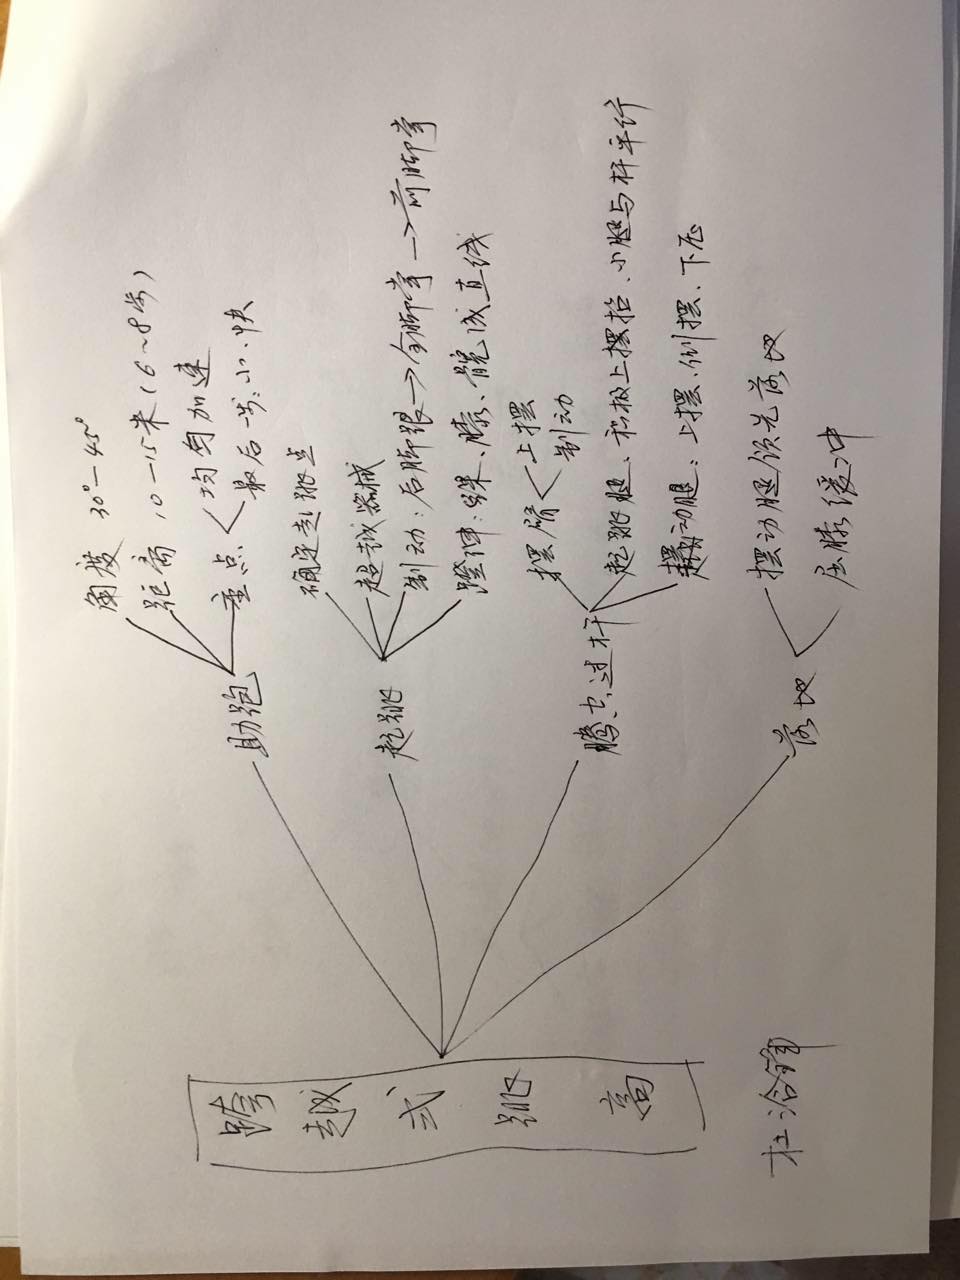 跨越式跳高
助跑
角度 30°—45°
距离 10—15米(6~8步)
重点
均匀加速
最后一步:小、快
起跳
确定起跳点
超越器械
制动:后脚跟→全脚掌→前脚掌
蹬伸:踝、膝、髋成直线
腾空过杆
摆臂
上摆
制动
起跳腿、积极上摆抬、小腿与杆平行
摆动腿:上摆、侧摆、下压
落地
摆动腿领先落地
屈膝缓冲
杜治锋